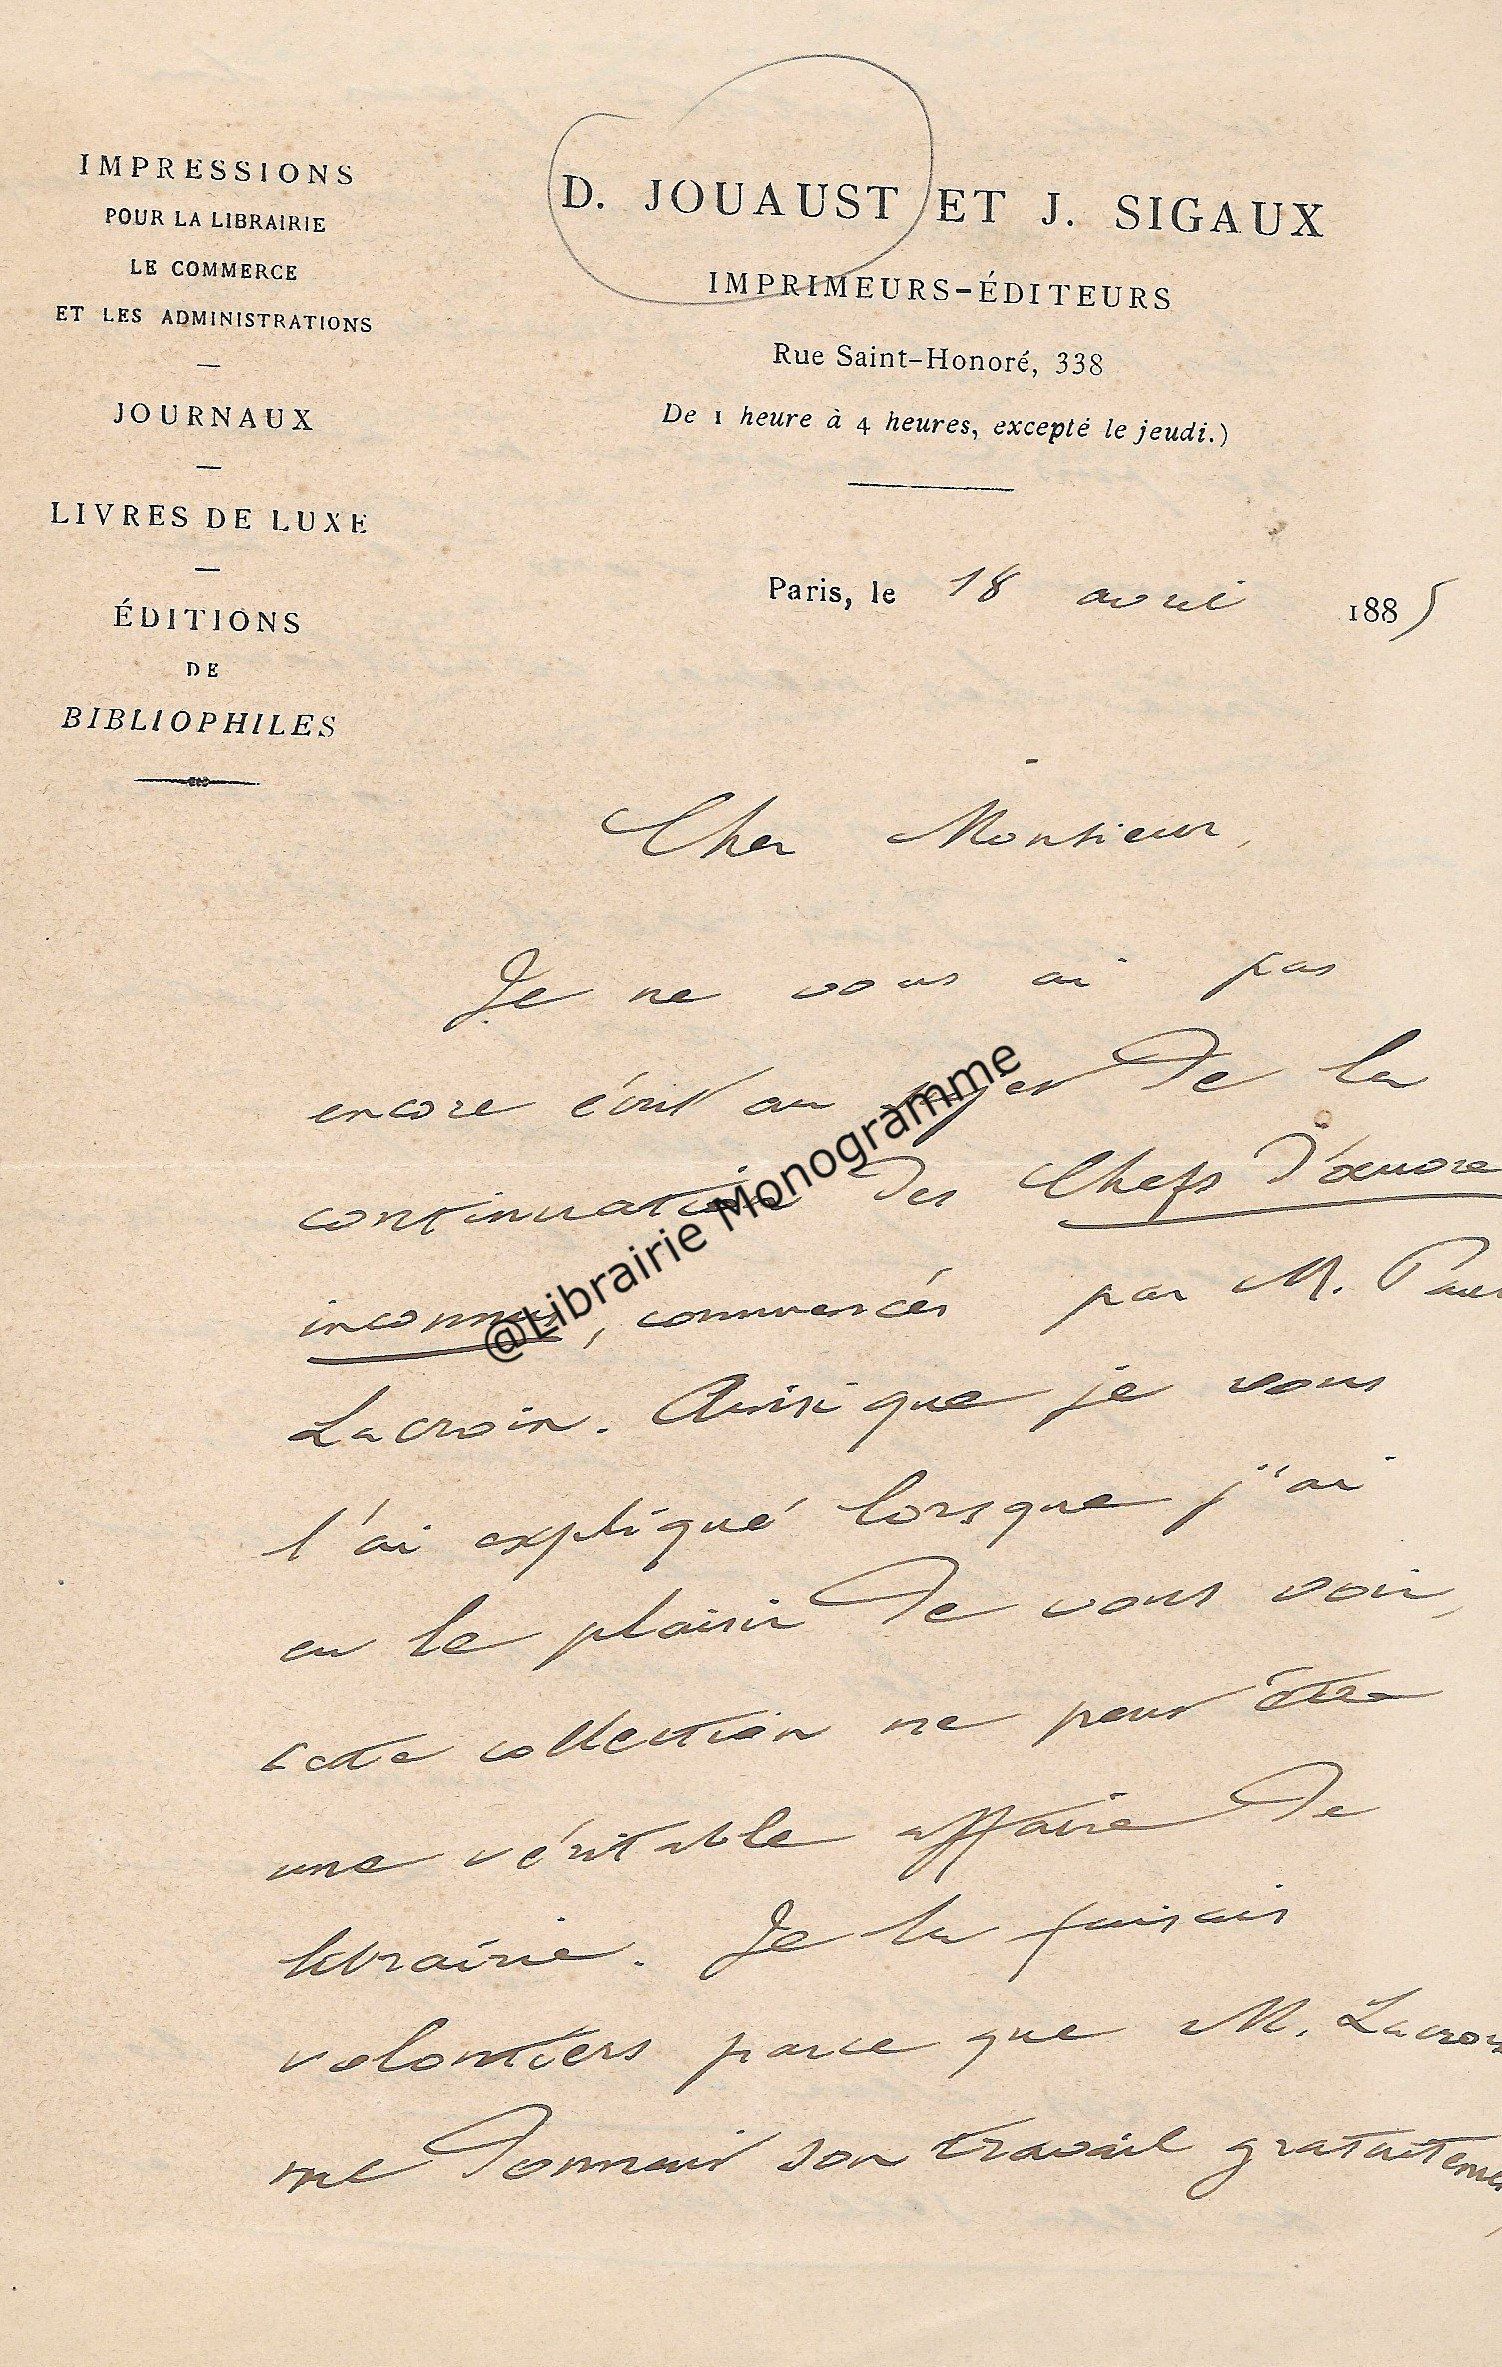 IMPRESSIONS
POUR LA LIBRAIRIE
LE COMMERCE
ET LES ADMINISTRATIONS
JOURNAUX
LIVRES DE LUXE
ÉDITIONS
DE
BIBLIOPHILES
D. JOUAUST ET J. SIGAUX
IMPRIMEURS-ÉDITEURS
Rue Saint-Honoré, 338
De 1 heure à 4 heures, excepté le jeudi.)
Paris, le 18 avril 1885
Cher Monsieur,
Je ne vous ai pas
encore écrit au sujet de la
continuation des Chefs d'œuvre
inconnus, commencés par M. Paul
Lacroix. Ainsi que je vous
l'ai expliqué lorsque j'ai
eu le plaisir de vous voir,
cette collection ne peut être
une véritable affaire de
librairie. Je la faisais
volontiers parce que M. Lacroix
me donnait son travail gratuitement,
@Librairie Monogramme